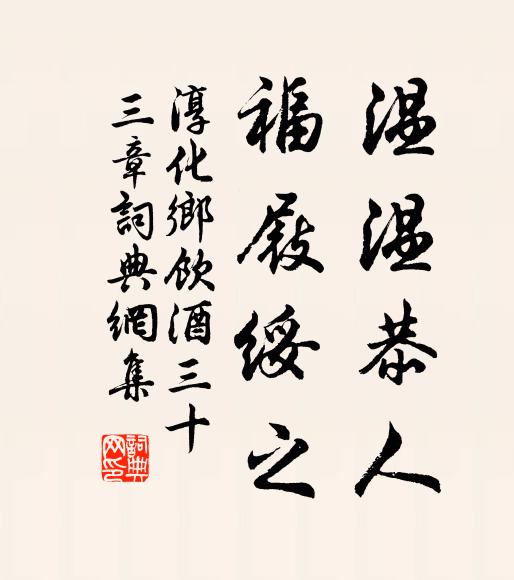 温温恭人
福履綏之
淳化鄉飲酒三十
三章詞典網集
詞典网印